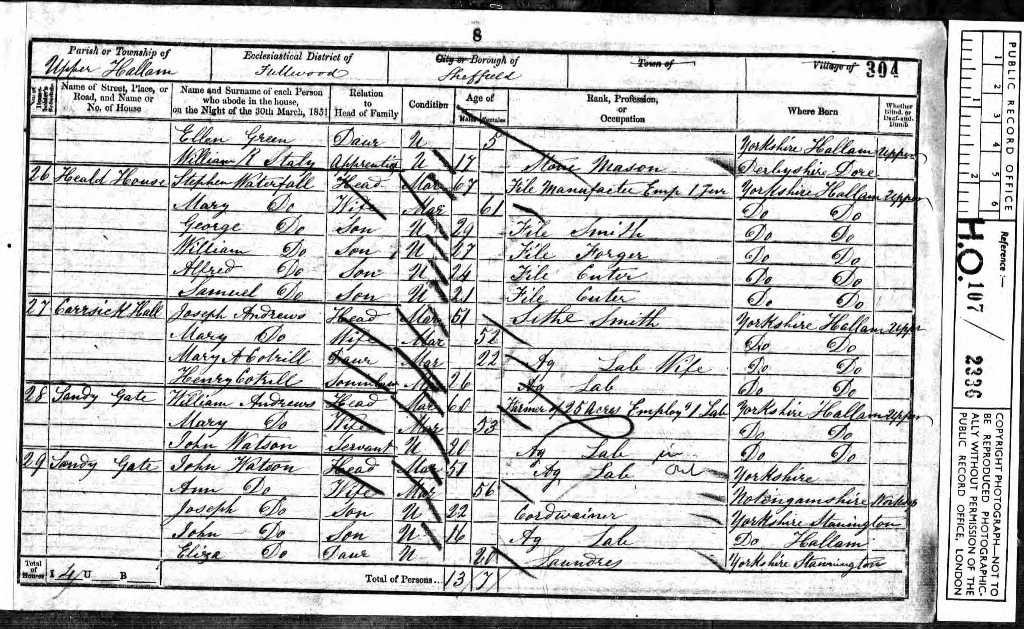 8
Parish or Township of Ecclesiastical District of City or Borough of Town of Village of 304
Upper Hallam Fullwood Sheffield
Name of Street, Place, or Road, and Name or No. of House Name and Surname of each Person who abode in the house, on the Night of the 30th March, 1851 Relation to Head of Family Condition Age of Males Females Rank, Profession, or Occupation Where Born Whether Blind, or Deaf-and-Dumb
Ellen Green Daur U 5 Yorkshire Hallam Upper
William R Staly Apprentice U 17 Stone Mason Derbyshire Dore
26 Heald House Stephen Waterfall Head Mar 67 File Manufacter Emp 1 Jur Yorkshire Hallam Upper
Mary Do Wife Mar 61 Do Do
George Do Son U 29 File Smith Do Do
William Do Son U 27 File Forger Do Do
Alfred Do Son U 24 File Cuter Do Do
Samuel Do Son U 21 File Cuter Do Do
27 Carrsick Hall Joseph Andrews Head Mar 51 Sithe Smith Yorkshire Hallam Upper
Mary Do Wife Mar 52 Do Do
Mary A Cotrill Daur Mar 22 Ag Lab Wife Do Do
Henry Cotrill Soninlaw Mar 26 Ag Lab Do Do
28 Sandy Gate William Andrews Head Mar 60 Farmer of 25 Acres Employg 1 Lab Yorkshire Hallam Upper
Mary Do Wife Mar 53 Do Do
John Watson Servant U 20 Ag Lab in Do Do
29 Sandy Gate John Watson Head Mar 51 Ag Lab Out Yorkshire
Ann Do Wife Mar 56 Notengamshire Worksop
Joseph Do Son U 22 Cordwainer Yorkshire Stanington
John Do Son U 16 Ag Lab Do Hallam
Eliza Do Daur U 20 Laundres Yorkshire Stannington
Total of Houses I 4 U B Total of Persons... 13 7
PUBLIC RECORD OFFICE
1 2 3 4 5 6
1 2
Reference :-
H.O. 107 / 2336
COPYRIGHT PHOTOGRAPH—NOT TO
BE REPRODUCED PHOTOGRAPHIC-
ALLY WITHOUT PERMISSION OF THE
PUBLIC RECORD OFFICE, LONDON